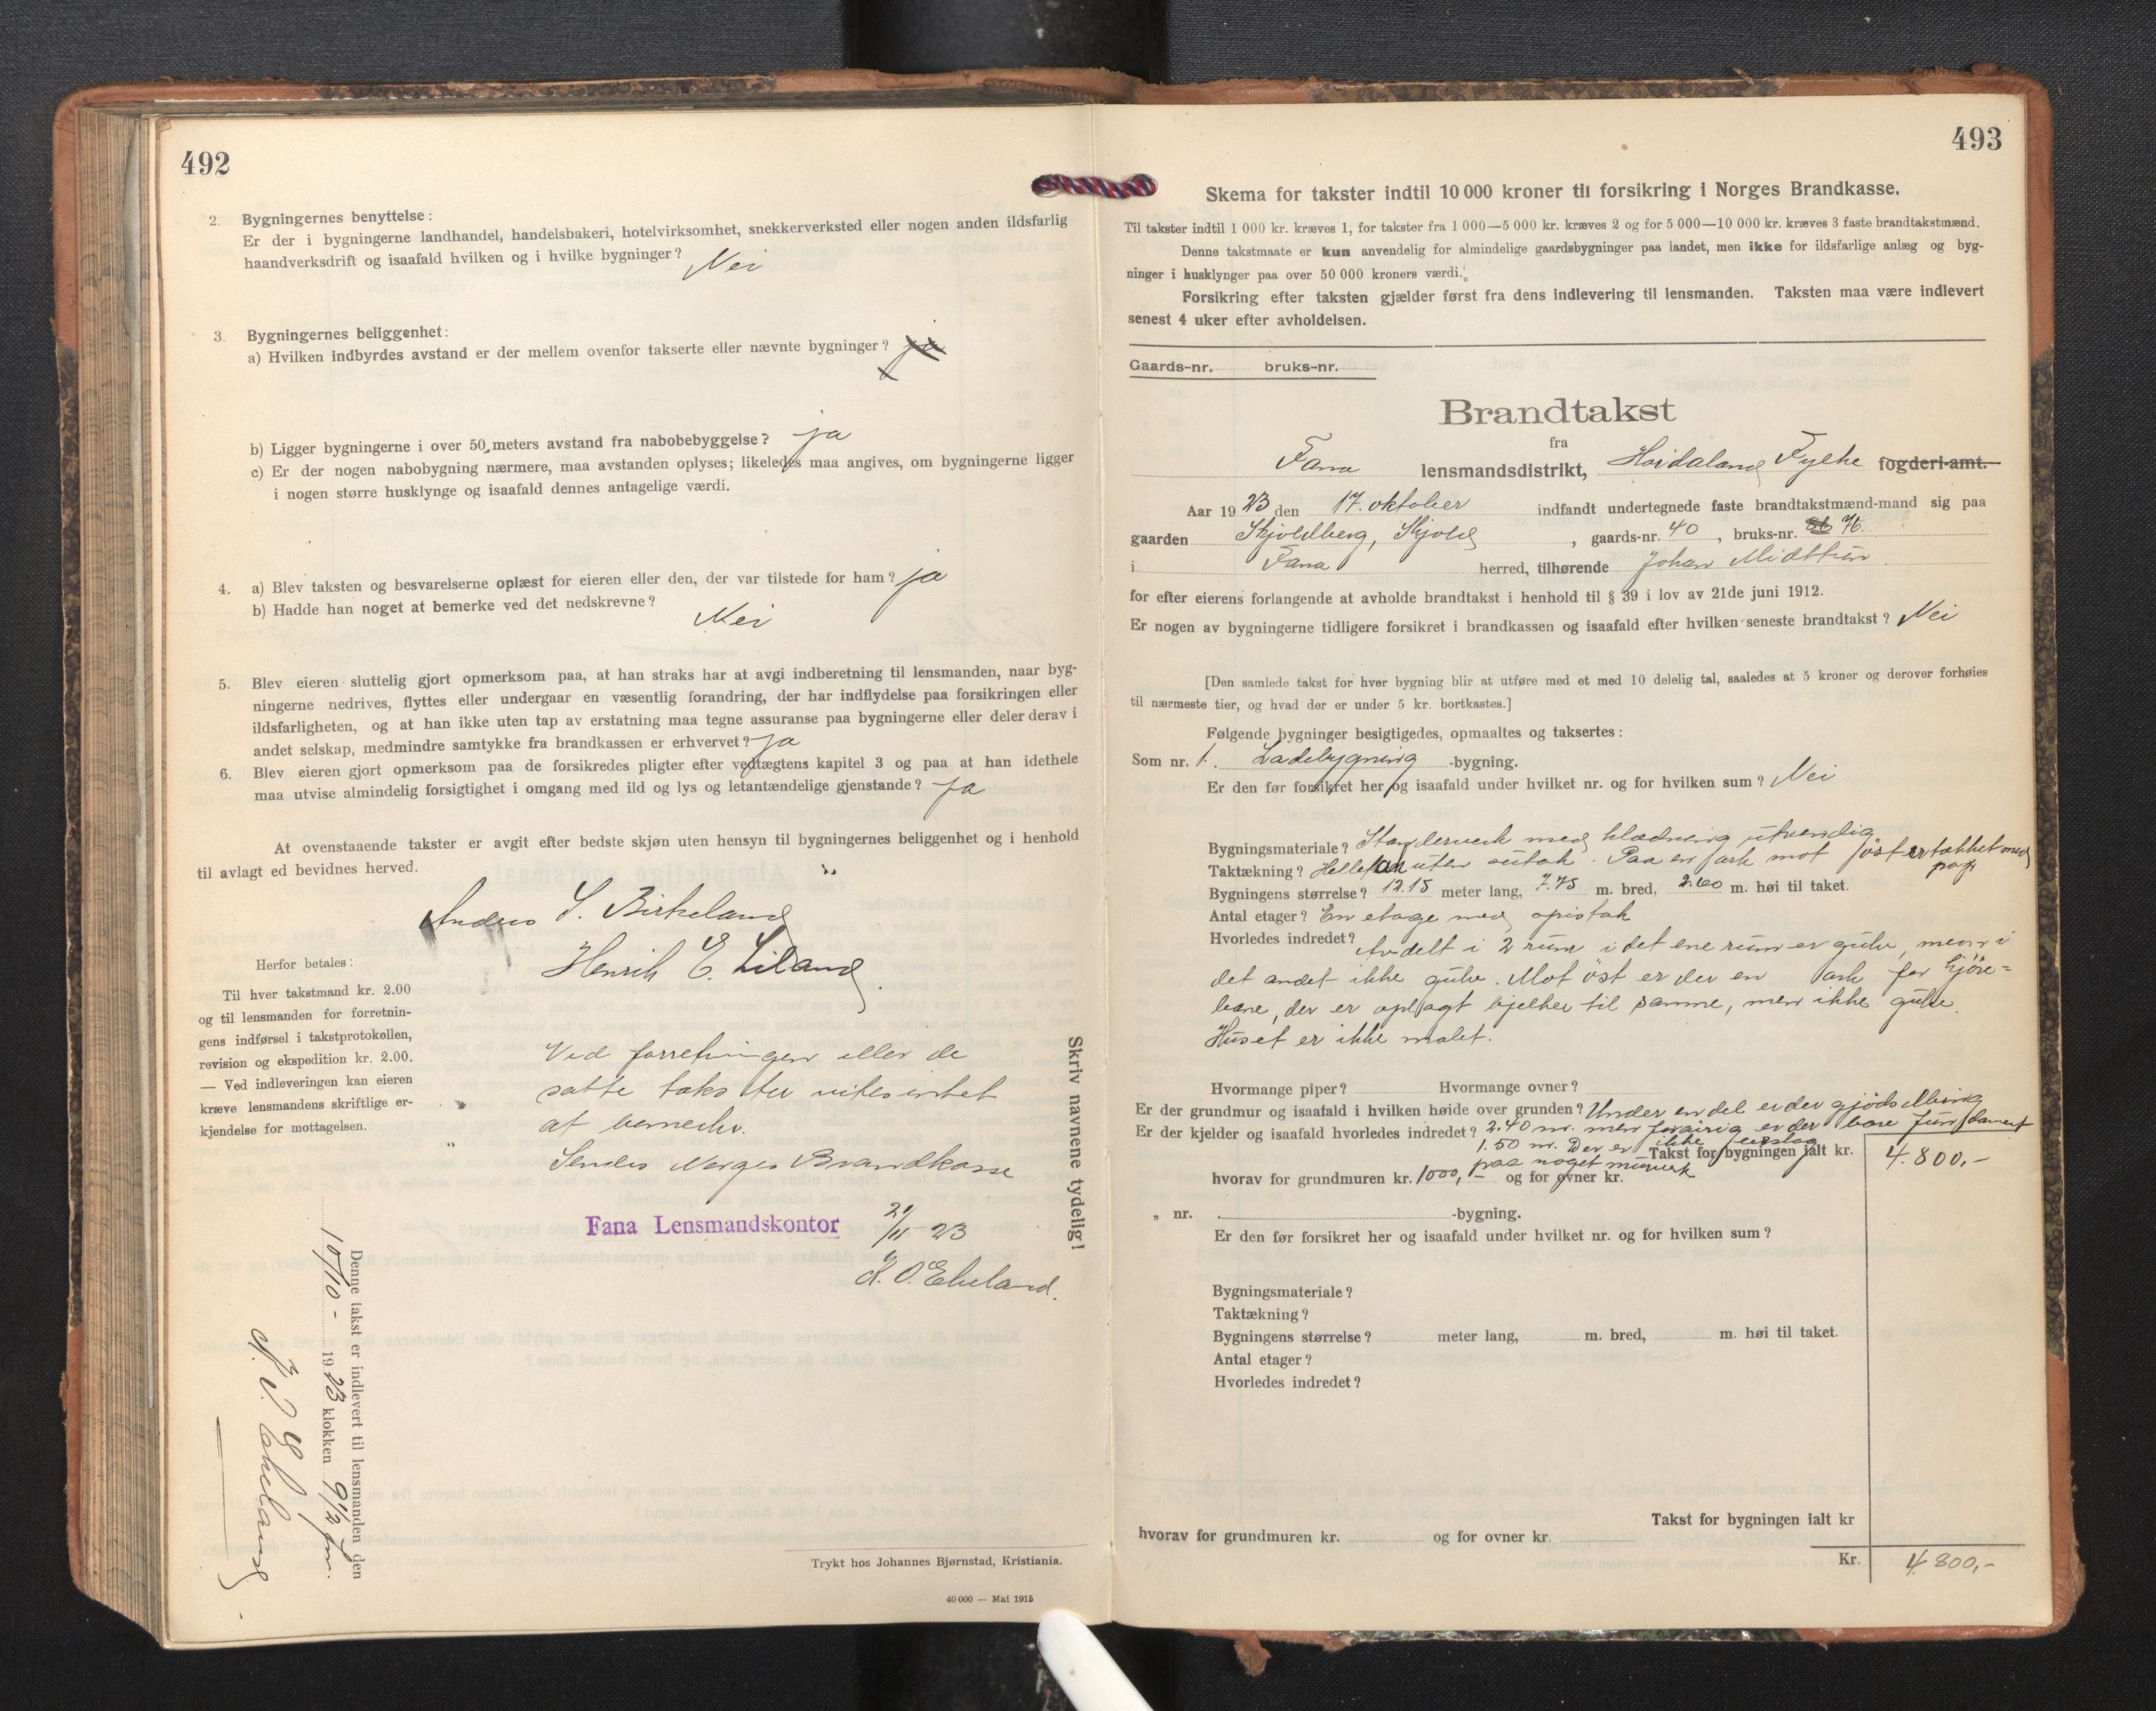 492
2. Bygningernes benyttelse:
Er der i bygningerne landhandel, handelsbakeri, hotelvirksomhet, snekkerverksted eller nogen anden ildsfarlig
haandverksdrift og isaafald hvilken og i hvilke bygninger? Nei
3. Bygningernes beliggenhet:
a) Hvilken indbyrdes avstand er der mellem ovenfor takserte eller nævnte bygninger? ja
b) Ligger bygningerne i over 50 meters avstand fra nabobebyggelse? ja
c) Er der nogen nabobygning nærmere, maa avstanden oplyses; likeledes maa angives, om bygningerne ligger
i nogen større husklynge og isaafald dennes antagelige værdi.
4. a) Blev taksten og besvarelserne oplæst for eieren eller den, der var tilstede for ham? ja
b) Hadde han noget at bemerke ved det nedskrevne? Nei
5. Blev eieren sluttelig gjort opmerksom paa, at han straks har at avgi indberetning til lensmanden, naar byg-
ningerne nedrives, flyttes eller undergaar en væsentlig forandring, der har indflydelse paa forsikringen eller
ildsfarligheten, og at han ikke uten tap av erstatning maa tegne assuranse paa bygningerne eller deler derav i
andet selskap, medmindre samtykke fra brandkassen er erhvervet? ja
6. Blev eieren gjort opmerksom paa de forsikredes pligter efter vedtægtens kapitel 3 og paa at han idethele
maa utvise almindelig forsigtighet i omgang med ild og lys og letantændelige gjenstande? ja
At ovenstaaende takster er avgit efter bedste skjøn uten hensyn til bygningernes beliggenhet og i henhold
til avlagt ed bevidnes herved.
Anders S. Birkeland
Henrik E. Liland.
Herfor betales:
Til hver takstmand kr. 2.00
og til lensmanden for forretnin-
gens indførsel i takstprotokollen,
revision og ekspedition kr. 2.00.
— Ved indleveringen kan eieren
kræve lensmandens skriftlige er-
kjendelse for mottagelsen.
Ved forretningen eller de
satte takster vites intet
at bemerke.
Sendes Norges Brandkasse
Fana Lensmandskontor 21/11-23
K. O. Ekeland.
Skriv navnene tydelig!
Denne takst er indlevert til lensmanden den
10/10 - 1923 klokken 9 1/2 fm.
Ekeland
Trykt hos Johannes Bjørnstad, Kristiania.
40 000 — Mai 1915
493
Skema for takster indtil 10 000 kroner til forsikring i Norges Brandkasse.
Til takster indtil 1 000 kr. kræves 1, for takster fra 1 000—5 000 kr. kræves 2 og for 5 000—10 000 kr. kræves 3 faste brandtakstmænd.
Denne takstmaate er kun anvendelig for almindelige gaardsbygninger paa landet, men ikke for ildsfarlige anlæg og byg-
ninger i husklynger paa over 50 000 kroners værdi.
Forsikring efter taksten gjælder først fra dens indlevering til lensmanden. Taksten maa være indlevert
senest 4 uker efter avholdelsen.
Gaards-nr. bruks-nr.
Brandtakst
fra
Fana lensmandsdistrikt, Hordaland Fylke fogderi-amt.
Aar 1923 den 17. oktober indfandt undertegnede faste brandtakstmænd-mand sig paa
gaarden Skjoldberg, Skjold, gaards-nr. 40, bruks-nr. 76.
i Fana herred, tilhørende Johan Midttun
for efter eierens forlangende at avholde brandtakst i henhold til § 39 i lov av 21de juni 1912.
Er nogen av bygningerne tidligere forsikret i brandkassen og isaafald efter hvilken seneste brandtakst? Nei
[Den samlede takst for hver bygning blir at utføre med et med 10 delelig tal, saaledes at 5 kroner og derover forhøies
til nærmeste tier, og hvad der er under 5 kr. bortkastes.]
Følgende bygninger besigtigedes, opmaaltes og taksertes:
Som nr. 1. Ladebygning -bygning.
Er den før forsikret her og isaafald under hvilket nr. og for hvilken sum? Nei
Bygningsmateriale? Stenderverk med klædning utvendig
Taktækning? Helletak uten sutak. Paa en ark mot øst er tækket med
pap
Bygningens størrelse? 12.15 meter lang, 7.75 m. bred, 2.60 m. høi til taket.
Antal etager? En etage med opistak
Hvorledes indredet? Avdelt i 2 rum i det ene rum er gulv, men i
det andet ikke gulv. Mot øst er der en ark for kjøre-
bane, der er oplagt bjelker til samme, men ikke gulve.
Huset er ikke malet.
Hvormange piper? Hvormange ovner?
Er der grundmur og isaafald i hvilken høide over grunden? Under en del er der gjødselbing
Er der kjelder og isaafald hvorledes indredet? 2.40 m. men forøvrig er der bare fundament
1.50 m. Der er ikke feieslag
paa noget murverk
Takst for bygningen ialt kr. 4.800,-
hvorav for grundmuren kr. 1000,- og for ovner kr.
„ nr. -bygning.
Er den før forsikret her og isaafald under hvilket nr. og for hvilken sum?
Bygningsmateriale?
Taktækning?
Bygningens størrelse? meter lang, m. bred, m. høi til taket.
Antal etager?
Hvorledes indredet?
Takst for bygningen ialt kr
hvorav for grundmuren kr. og for ovner kr.
Kr. 4.800,-